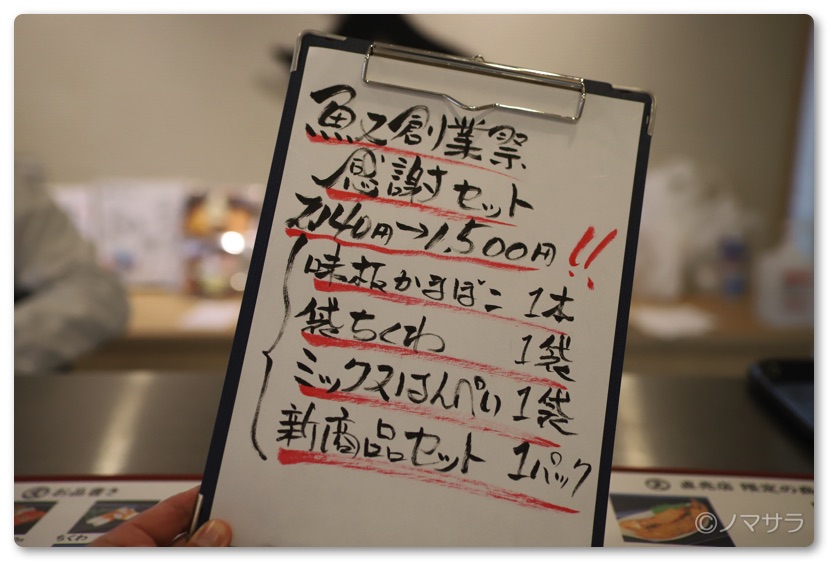 魚又創業祭
感謝セット
2140円→1,500円!!
味板かまぼこ 1本
袋ちくわ 1袋
ミックスはんぺい 1袋
新商品セット 1パック
お品書き
ちくわ
直売店 限定の
©ノマサラ